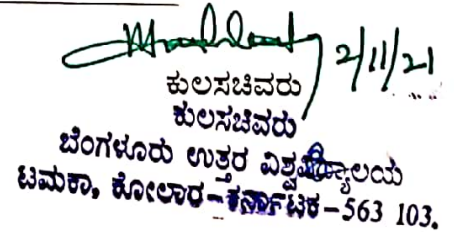 2/11/21
ಕುಲಸಚಿವರು
ಕುಲಸಚಿವರು
ಬೆಂಗಳೂರು ಉತ್ತರ ವಿಶ್ವವಿದ್ಯಾಲಯ
ಟಮಕಾ, ಕೋಲಾರ-ಕರ್ನಾಟಕ-563 103.